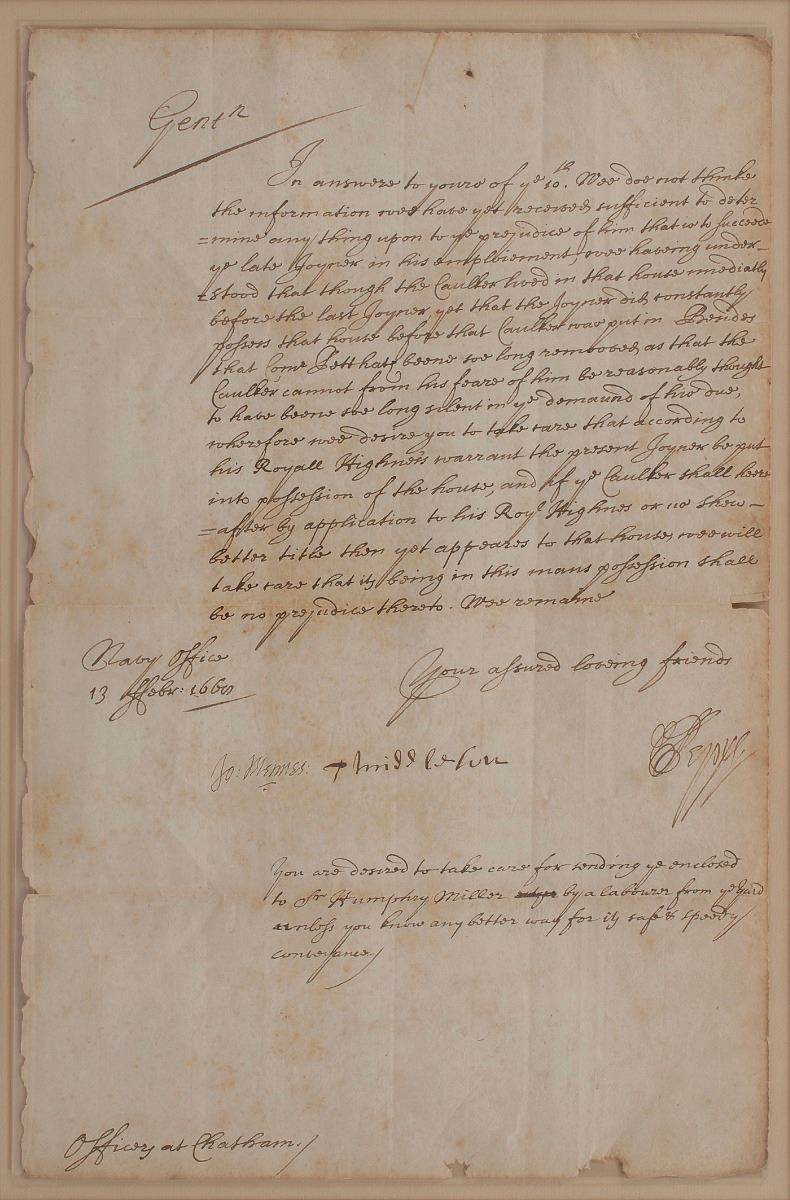 Gentn
In answere to yours of ye 10th. Wee doe not thinke
the information wee have yet received sufficient to deter
=mine any thing upon to ye prejudice of him that is to succeede
ye late Joyner in his emploiement, wee haveing under-
=stood that though the Caulker lived in that house imediatly
before the last Joyner, yet that the Joyner did constantly
possess that house before that Caulker was put in Besides
that Comr Pett hath beene soe long removed as that the
Caulker cannot from his feare of him be reasonably thought
to have beene soe long silent in ye demaund of his due,
wherefore wee desire you to take care that according to
his Royall Highness warrant the present Joyner be put
into possession of the house, and if ye Caulker shall heere
=after by application to his Royl Highnes or us shew-
better title then yet appeares to that house, wee will
take care that its being in this mans possession shall
be no prejudice thereto. Wee remaine
Your assured loveing friends
Navy Office
13 ffebr:
Jo: Mennes: Middleton SPepys
You are desired to take care for sending ye enclosed
to Sr Humphry Miller by a labourer from ye Yard
unless you know any better way for its safe & speedy
conveyance./
Officers at Chatham./